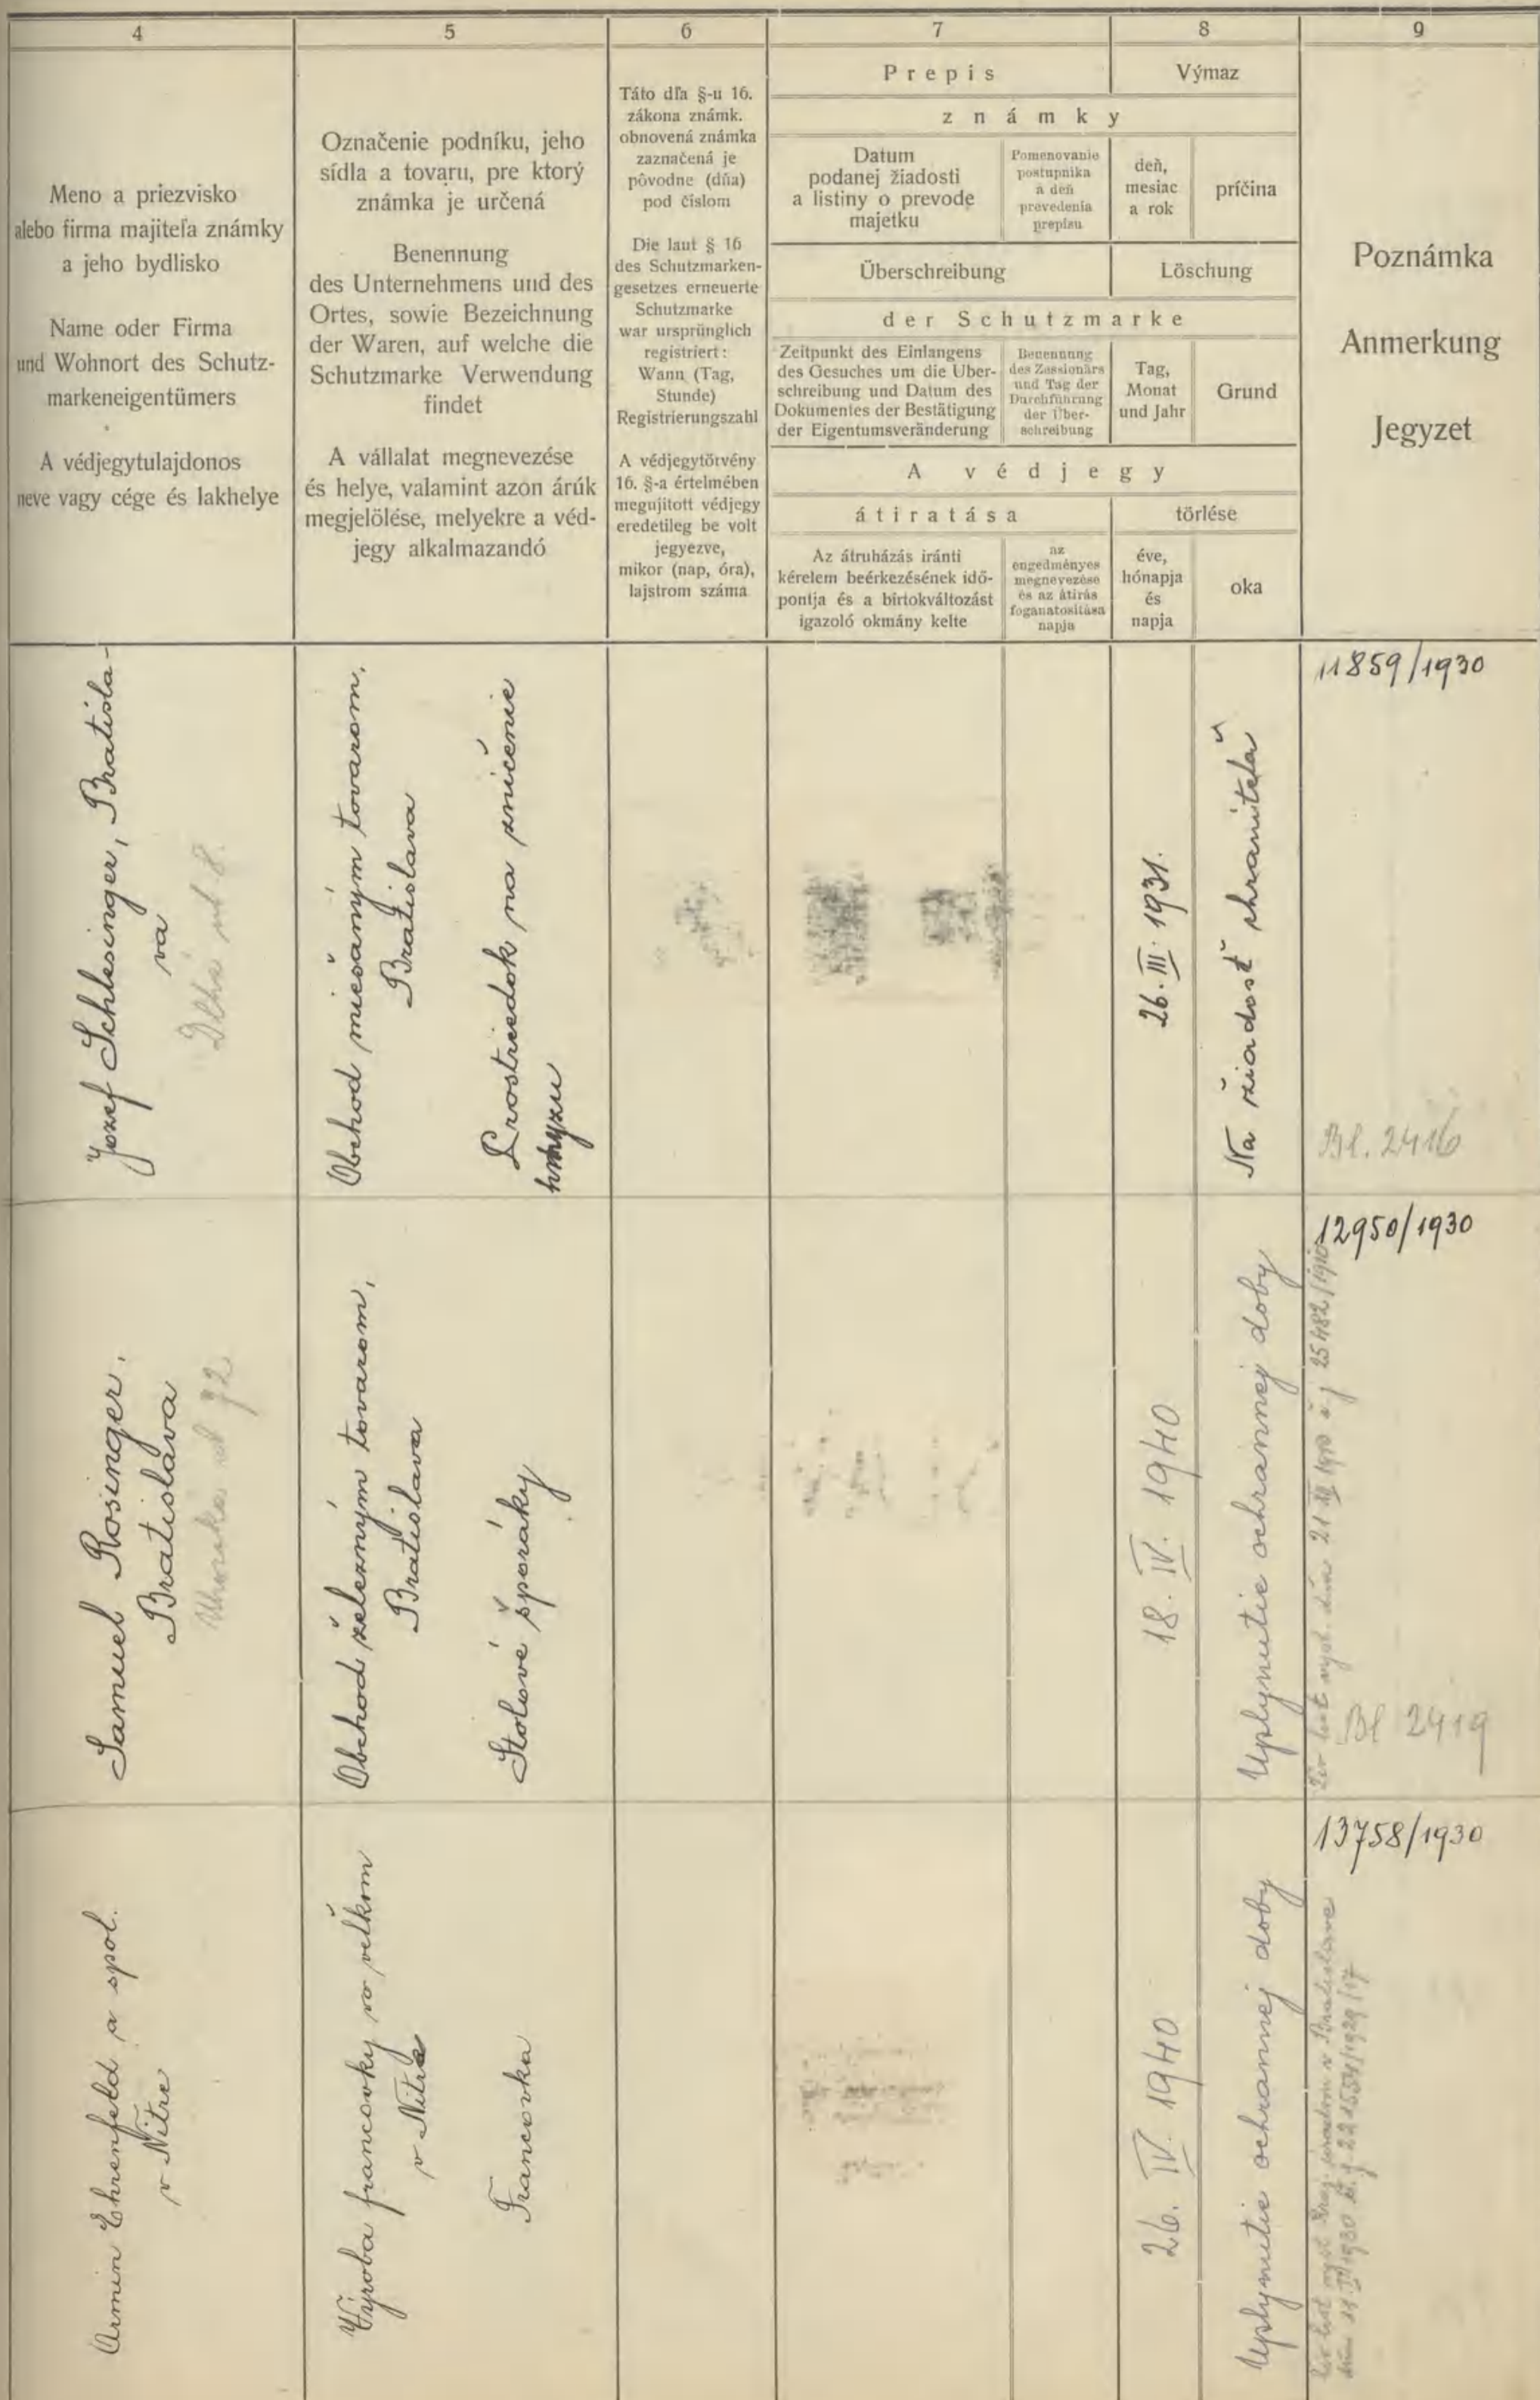 4
5
6
7
8
9
Meno a priezvisko
alebo firma majiteľa známky
a jeho bydlisko
Name oder Firma
und Wohnort des Schutz-
markeneigentümers
A védjegytulajdonos
neve vagy cége és lakhelye
Označenie podníku, jeho
sídla a tovaru, pre ktorý
známka je určená
Benennung
des Unternehmens und des
Ortes, sowie Bezeichnung
der Waren, auf welche die
Schutzmarke Verwendung
findet
A vállalat megnevezése
és helye, valamint azon árúk
megjelölése, melyekre a véd-
jegy alkalmazandó
Táto dľa §-u 16.
zákona známk.
obnovená známka
zaznačená je
pôvodne (dňa)
pod číslom
Die laut § 16
des Schutzmarken-
gesetzes erneuerte
Schutzmarke
war ursprünglich
registriert:
Wann (Tag,
Stunde)
Registrierungszahl
A védjegytörvény
16. §-a értelmében
megujított védjegy
eredetileg be volt
jegyezve,
mikor (nap, óra),
lajstrom száma
Prepis
Výmaz
známky
Datum
podanej žiadosti
a listiny o prevode
majetku
Pomenovanie
postupníka
a deň
prevedenia
prepisu
deň,
mesiac
a rok
príčina
Überschreibung
Löschung
der Schutzmarke
Zeitpunkt des Einlangens
des Gesuches um die Über-
schreibung und Datum des
Dokumentes der Bestätigung
der Eigentumsveränderung
Benennung
des Zessionärs
und Tag der
Durchführung
der Über-
schreibung
Tag,
Monat
und Jahr
Grund
A védjegy
átiratása
törlése
Az átruházás iránti
kérelem beérkezésének idő-
pontja és a birtokváltozást
igazoló okmány kelte
az
engedményes
megnevezése
és az átirás
foganatosítása
napja
éve,
hónapja
és
napja
oka
Poznámka
Anmerkung
Jegyzet
Jozef Schlesinger, Bratisla-
va
Dlhá ul 8.
Obchod miešaným tovarom,
Bratislava
Prostriedok na zničenie
hmyzu
26. III. 1931.
Na žiadosť chraniteľa
11859/1930
Bl. 2416
Samuel Rosinger,
Bratislava
72
Obchod železným tovarom,
Bratislava
Stolové šporáky
18. IV. 1940
Uplynutie ochrannej doby
12950/1930
Bl 2419
Armin Ehrenfeld a spol.
v Nitre
Výroba francovky vo veľkom
v Nitre
Francovka
26. IV. 1940
Uplynutie ochrannej doby
13758/1930